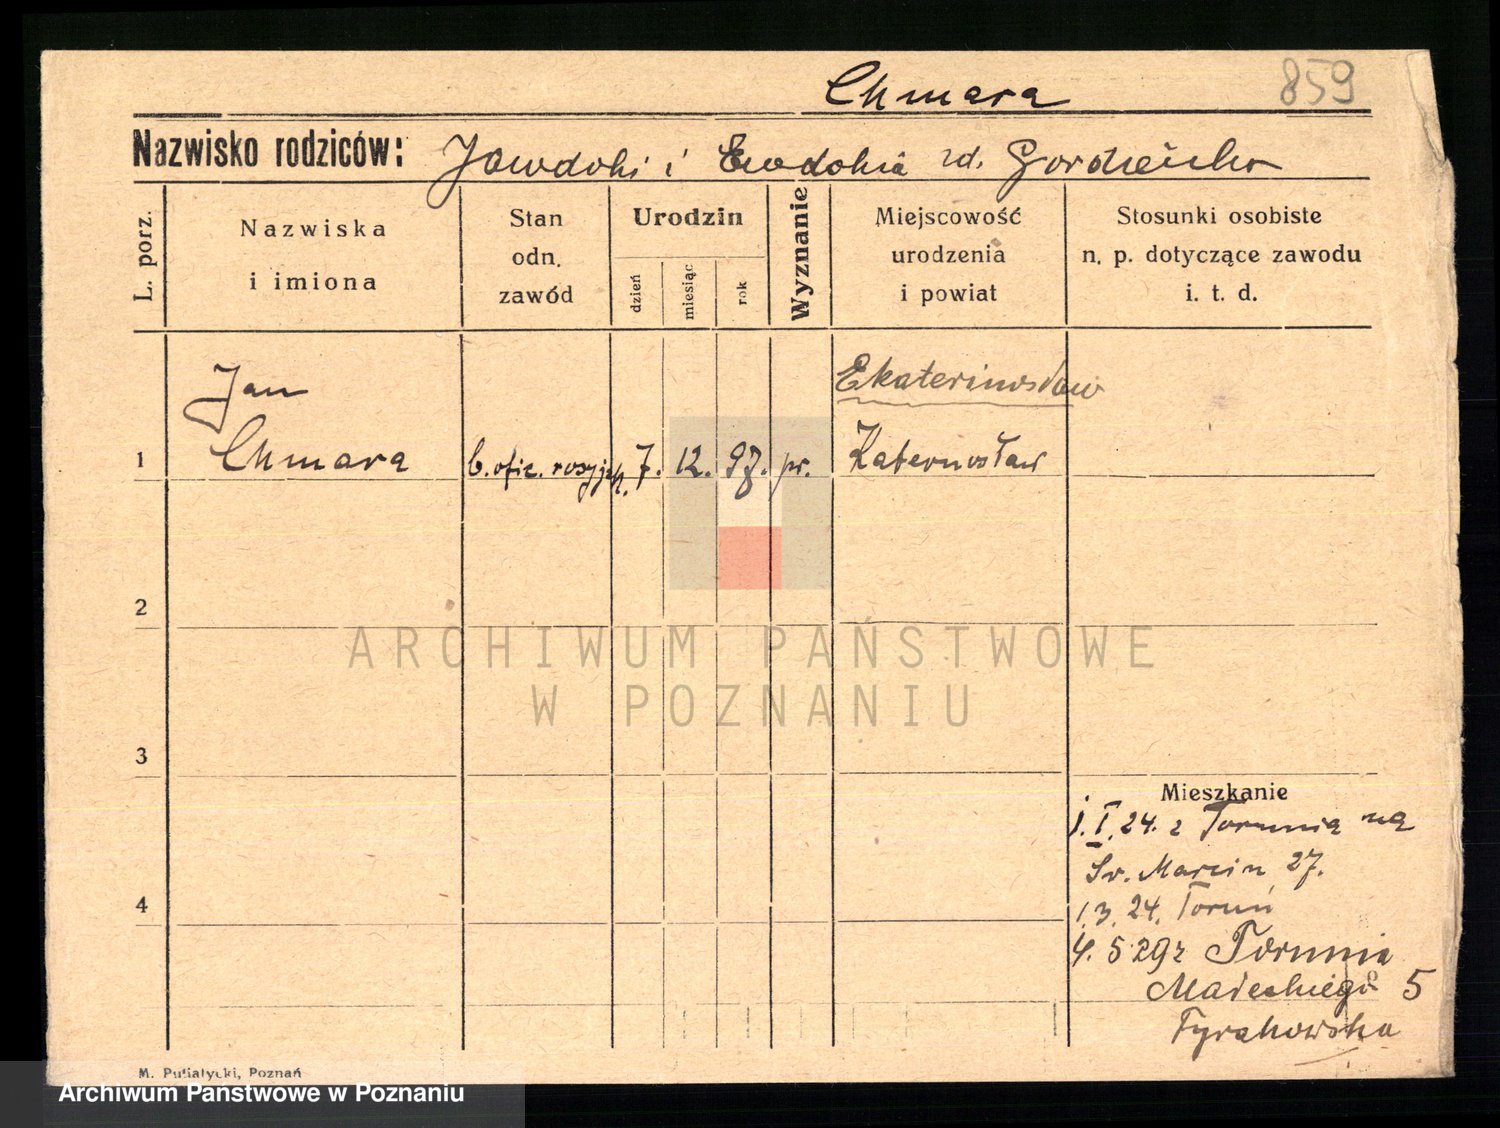 Chmara
859
Nazwisko rodziców: Jawdoki i Ewdokia zd.
L. porz.
Nazwiska i imiona
Stan odn. zawód
Urodzin
dzień
miesiąc
rok
Wyznanie
Miejscowość urodzenia i powiat
Stosunki osobiste n. p. dotyczące zawodu i. t. d.
Jan
Ekaterinosław
1 Chmara b. ofic. rosyjsk. 7. 12. 97. pr. Katernosław
2
ARCHIWUM PAŃSTWOWE
W POZNANIU
3
Mieszkanie
1.I.24. z Torunia na
Św. Marcin 27.
4
1.3.24. Toruń
4.5.29 z Torunia
Małeckiego 5
M. Putiatycki, Poznań
Archiwum Państwowe w Poznaniu